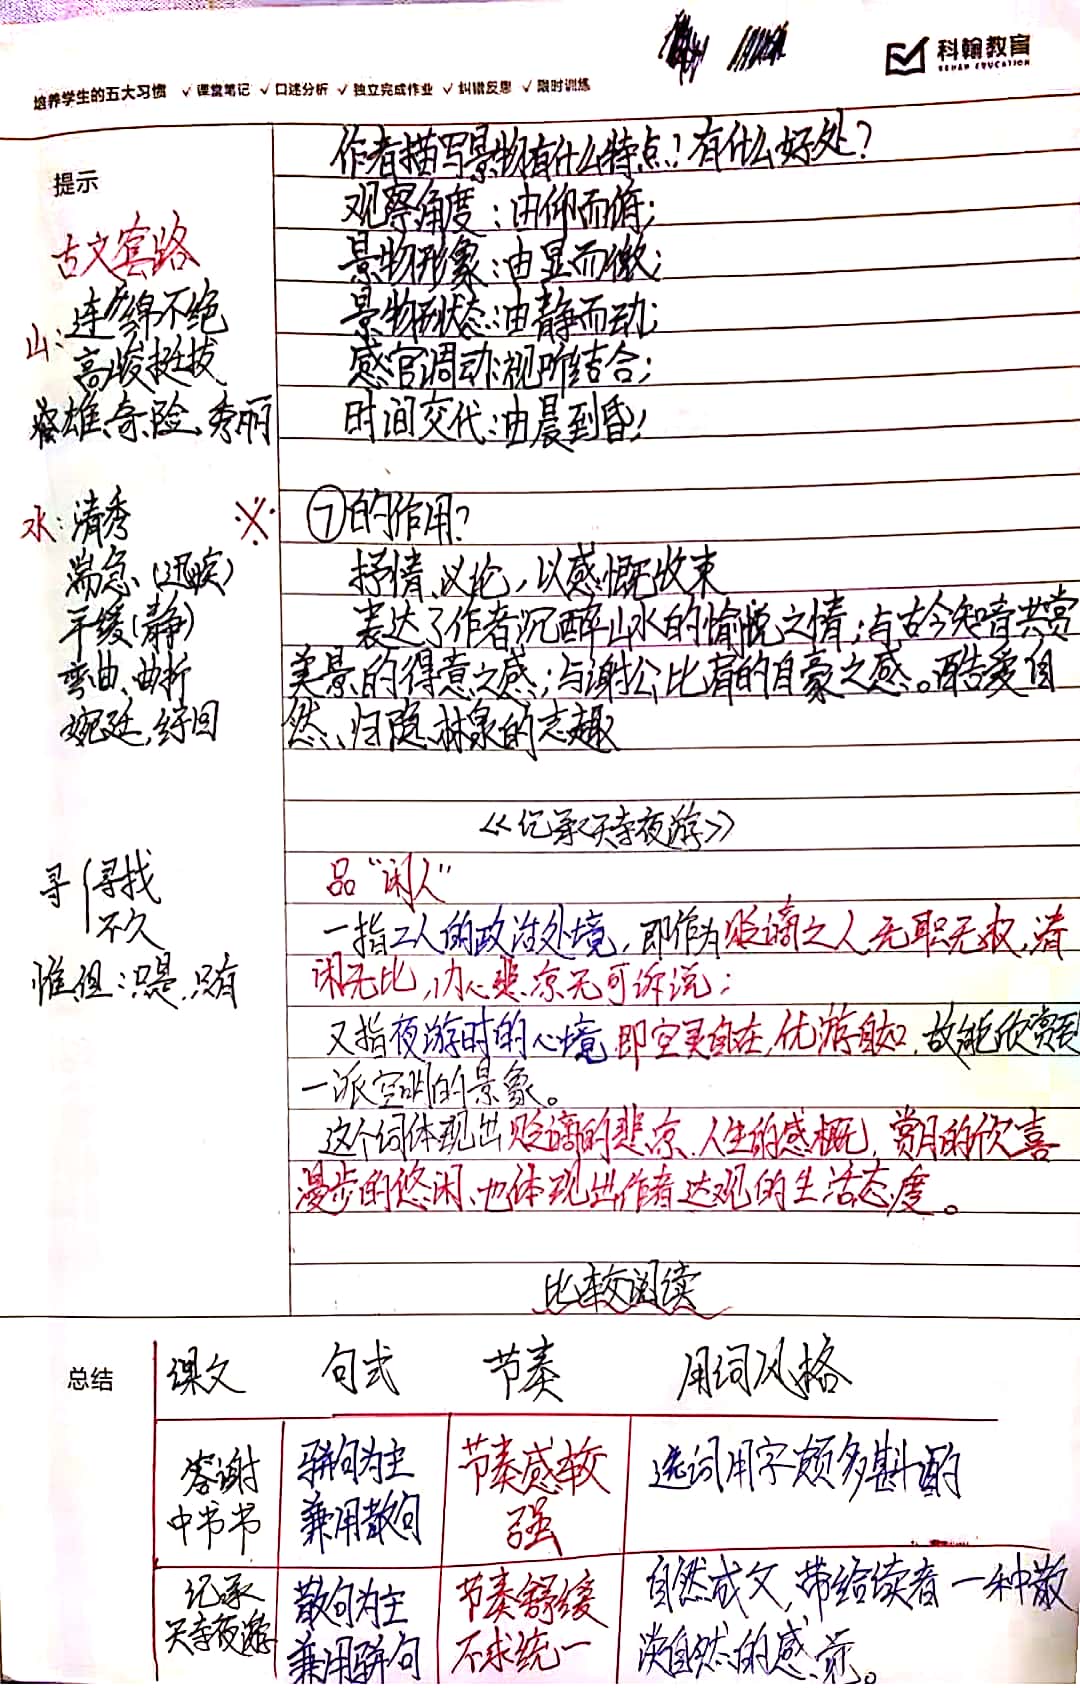 科翰教育
KEHAN EDUCATION
培养学生的五大习惯 ✓课堂笔记 ✓口述分析 ✓独立完成作业 ✓纠错反思 ✓限时训练
提示
古文套路
山:连绵不绝
高峻挺拔
雄、奇、险、秀丽
水:清秀
湍急(迅疾)
平缓(静)
弯曲、曲折
蜿廷,纡回
寻 寻找
不久
惟但:只是,只有
作者描写景物有什么特点?有什么好处?
观察角度:由仰而俯;
景物形象:由显而微;
景物状态:由静而动;
感官调动:视听结合;
时间交代:由晨到昏;
※ ⑦的作用?
抒情、议论,以感慨收束
表达了作者沉醉山水的愉悦之情;与古今知音共赏
美景的得意之感;与谢公比肩的自豪之感。酷爱自
然、归隐林泉的志趣
《记承天寺夜游》
品“闲人”
一指二人的政治处境,即作为贬谪之人,无职无权,清
闲无比,内心悲凉无可诉说;
又指夜游时的心境,即空灵自在,优游自如,故能欣赏到
一派空明的景象。
这个词体现出贬谪的悲凉、人生的感概,赏月的欣喜
漫步的悠闲、也体现出作者达观的生活态度。
比较阅读
总结
课文 句式 节奏 用词风格
答谢中书书 骈句为主兼用散句 节奏感较强 选词用字颇多斟酌
记承天寺夜游 散句为主兼用骈句 节奏舒缓不求统一 自然成文,带给读者一种散淡自然的感觉。